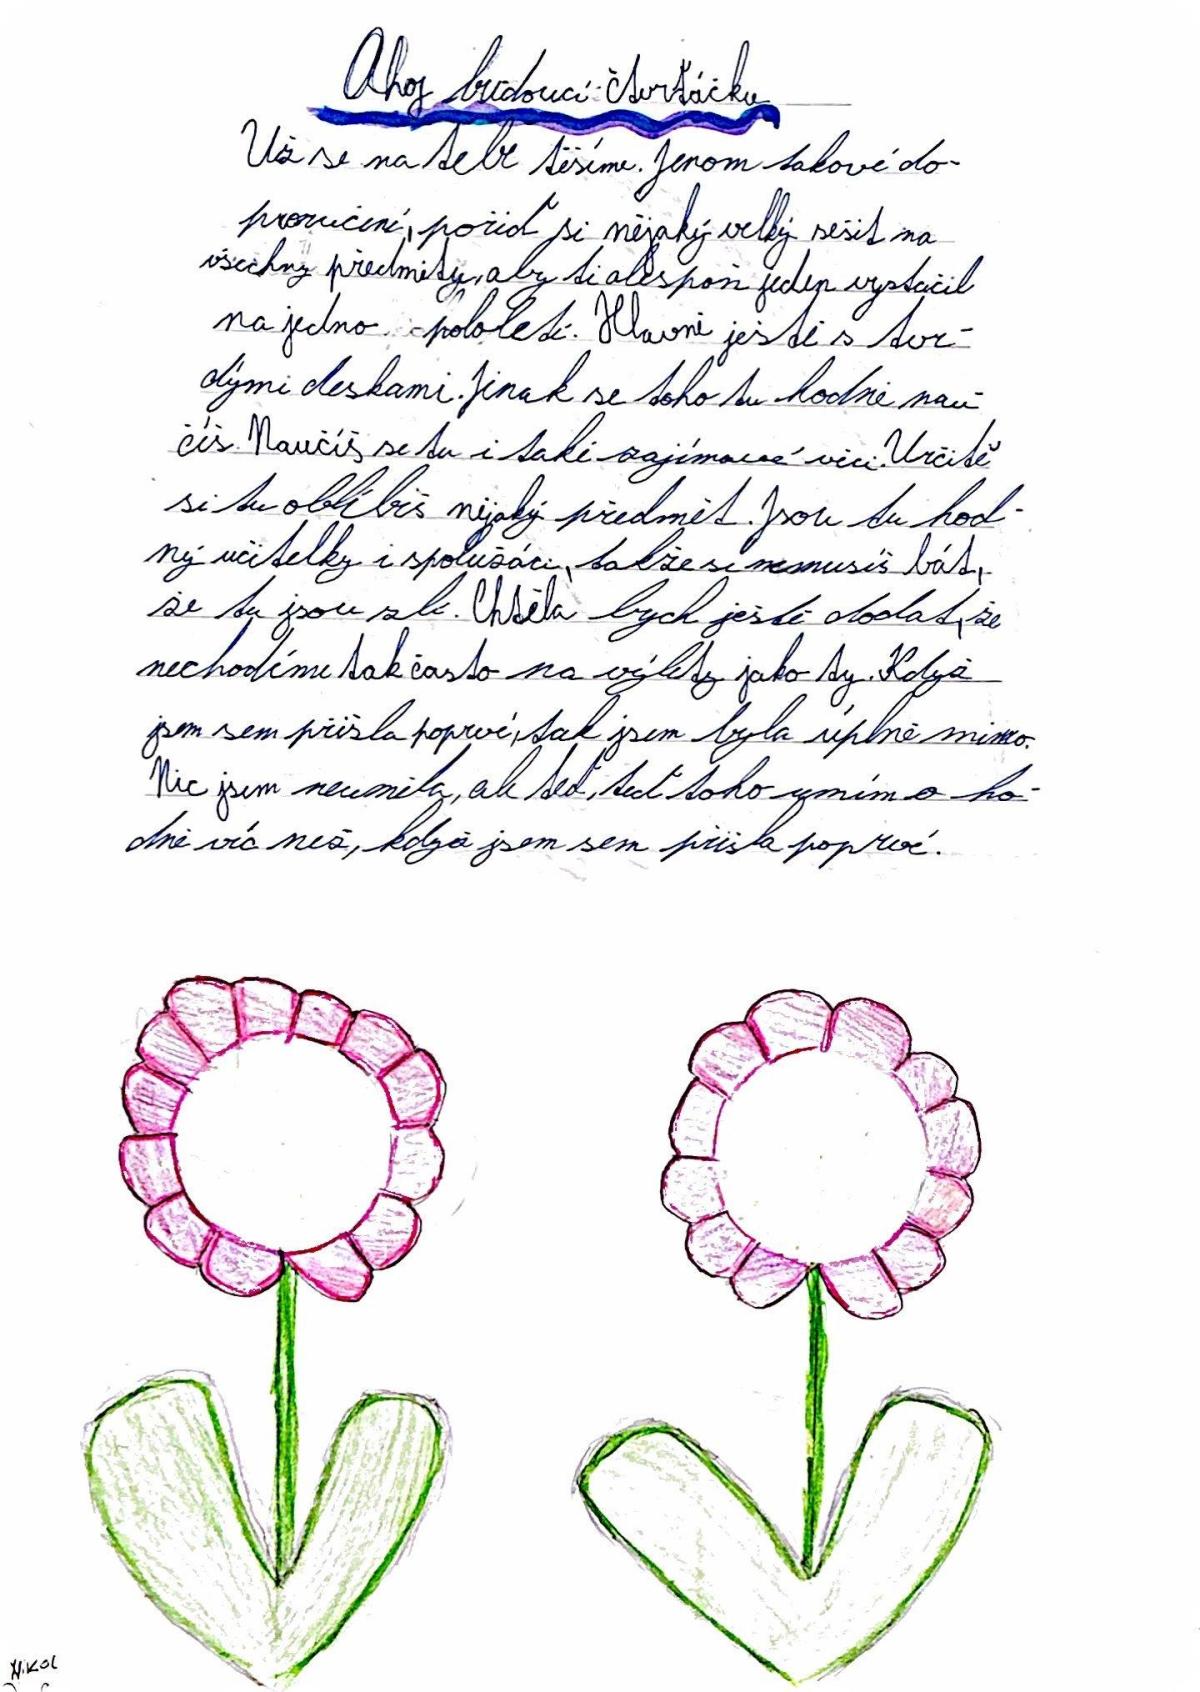 Ahoj budoucí čtvrťáčku
Už se na tebe těšíme. Jenom takové do-
poručení, pořiď si nějaký velký sešit na
všechny předměty, aby ti alespoň jeden vystačil
na jedno pololetí. Hlavně ještě s tvr-
dými deskami. Jinak se toho tu hodně nau-
číš. Naučíš se tu i také zajímavé věci. Určitě
si tu oblíbíš nějaký předmět. Jsou tu hod-
ný učitelky i spolužáci, takže se nemusíš bát,
že tu jsou zlí. Chtěla bych ještě dodat, že
nechodíme tak často na výlety jako ty. Když
jsem sem přišla poprvé, tak jsem byla úplně mimo.
Nic jsem neuměla, ale teď, teď toho umím o ho-
dně víc než, když jsem sem přišla poprvé.
Nikol